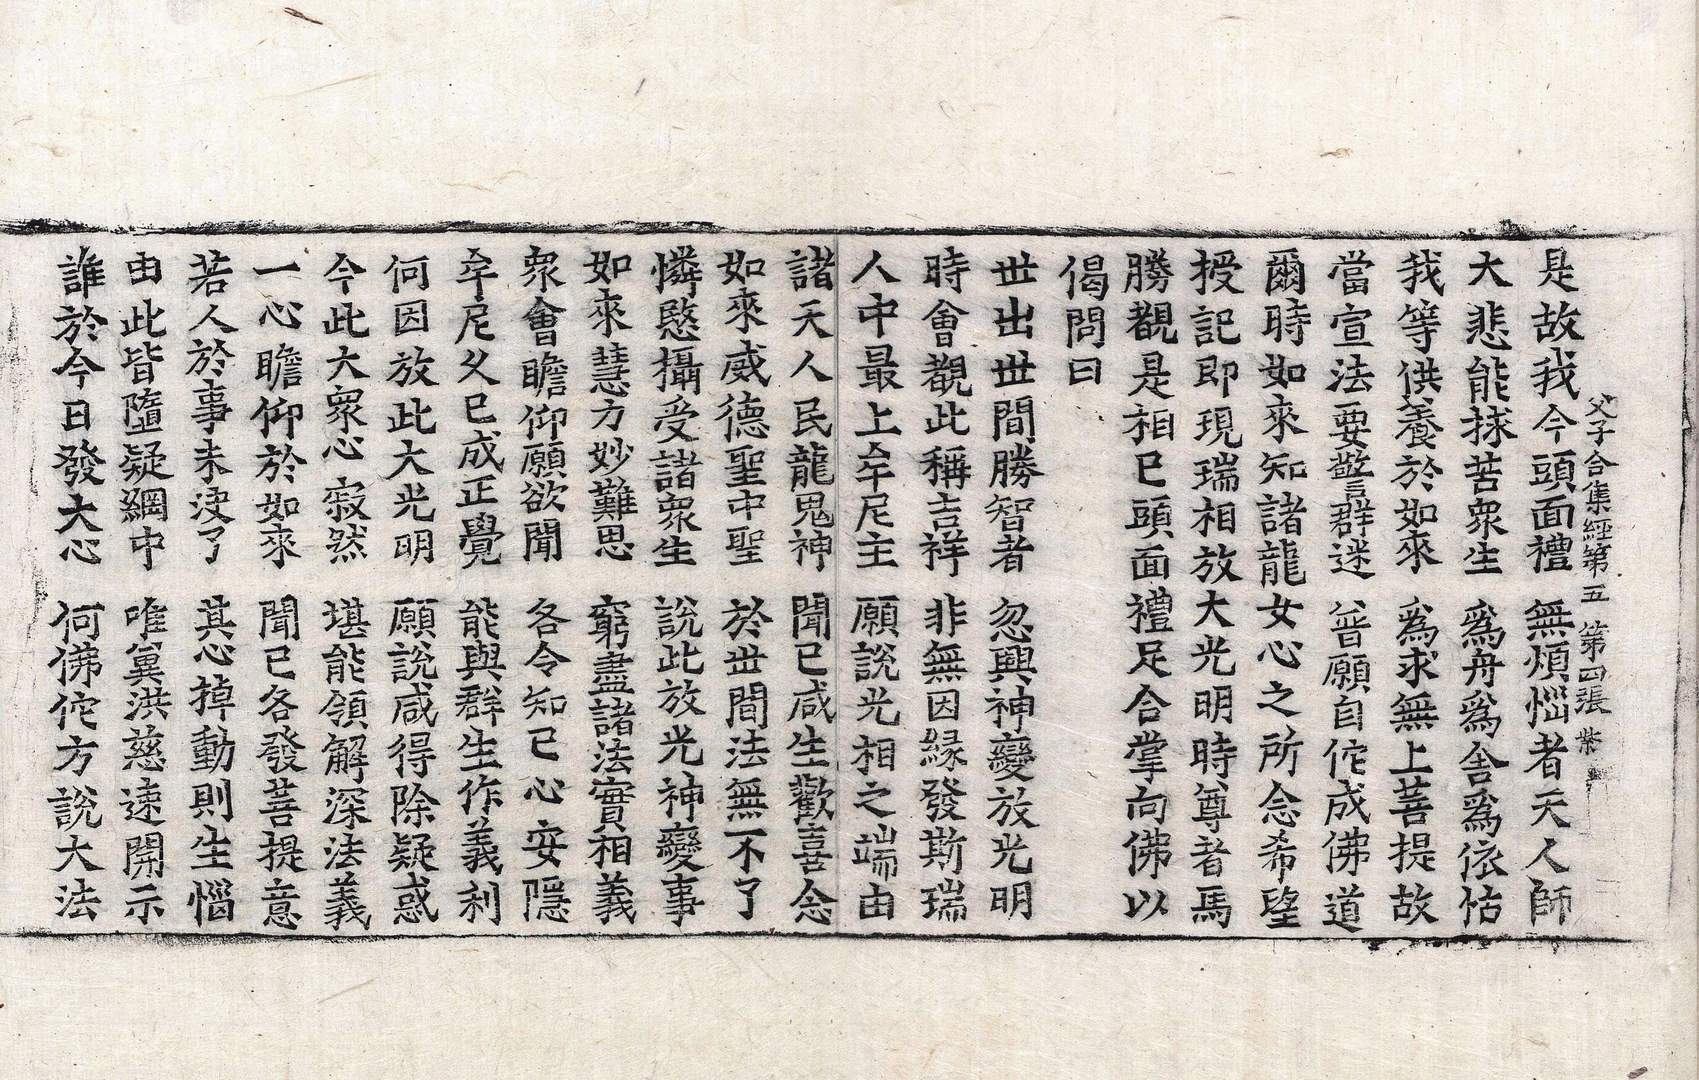 父子合集經第五　第四張　紫
是故我今頭面禮　無煩惱者天人師
大悲能捄苦衆生　爲舟爲舍爲依怙
我等供養於如來　爲求無上菩提故
當宣法要警群迷　普願自佗成佛道
爾時如來知諸龍女心之所念希望
授記即現瑞相放大光明時尊者馬
勝覩是相已頭面禮足合掌向佛以
偈問曰
世出世間勝智者　忽興神變放光明
時會觀此稱吉祥　非無因緣發斯瑞
人中最上牟尼主　願說光相之端由
諸天人民龍鬼神　聞已咸生歡喜念
如來威德聖中聖　於世間法無不了
憐愍攝受諸衆生　說此放光神變事
如來慧方妙難思　窮盡諸法實相義
衆會瞻仰願欲聞　各令知已心安隱
牟尼久已成正覺　能與群生作義利
何因放此大光明　願說咸得除疑惑
今此大衆心寂然　堪能領解深法義
一心瞻仰於如來　聞已各發菩提意
若人於事未決了　其心掉動則生惱
由此皆墮疑網中　唯冀洪慈速開示
誰於今日發大心　何佛佗方說大法